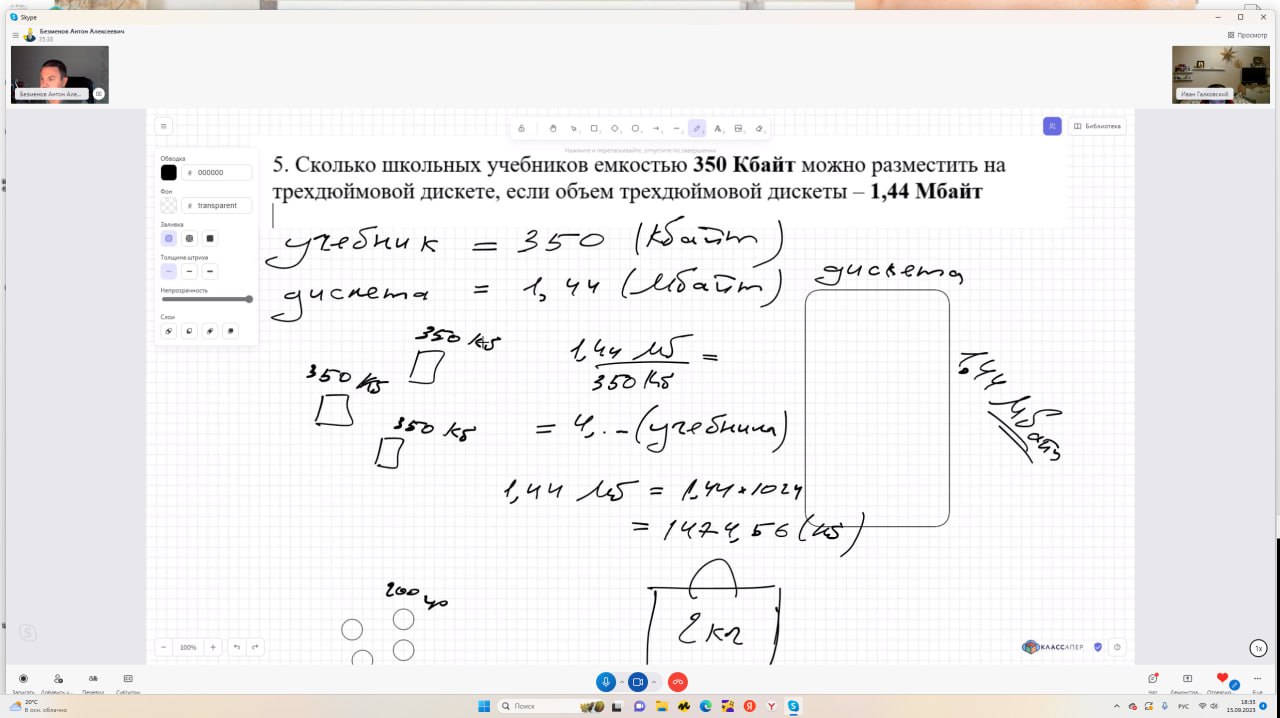 Skype
Безменов Антон Алексеевич
35:38
Просмотр
Безменов Антон Але...
Иван Галковский
Библиотека
Нажмите и перетаскивайте, отпустите по завершении
Обводка
# 000000
Фон
# transparent
Заливка
Толщина штриха
Непрозрачность
Слои
5. Сколько школьных учебников емкостью 350 Кбайт можно разместить на
трехдюймовой дискете, если объем трехдюймовой дискеты – 1,44 Мбайт
учебник = 350 (Кбайт)
дискета = 1,44 (Мбайт)
дискета
350 Кб
350 Кб
350 Кб
1,44 Мб =
350 Кб
= 4,... (учебника)
1,44 Мбайт
1,44 Мб = 1,44*1024
= 1474,56 (Кб)
200
2 кг
100%
КЛАССАПЕР
1x
20°C
В осн. облачно
Поиск
РУС
18:35
15.09.2023